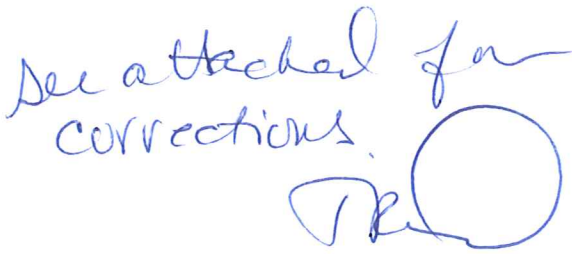 See attached for
corrections.